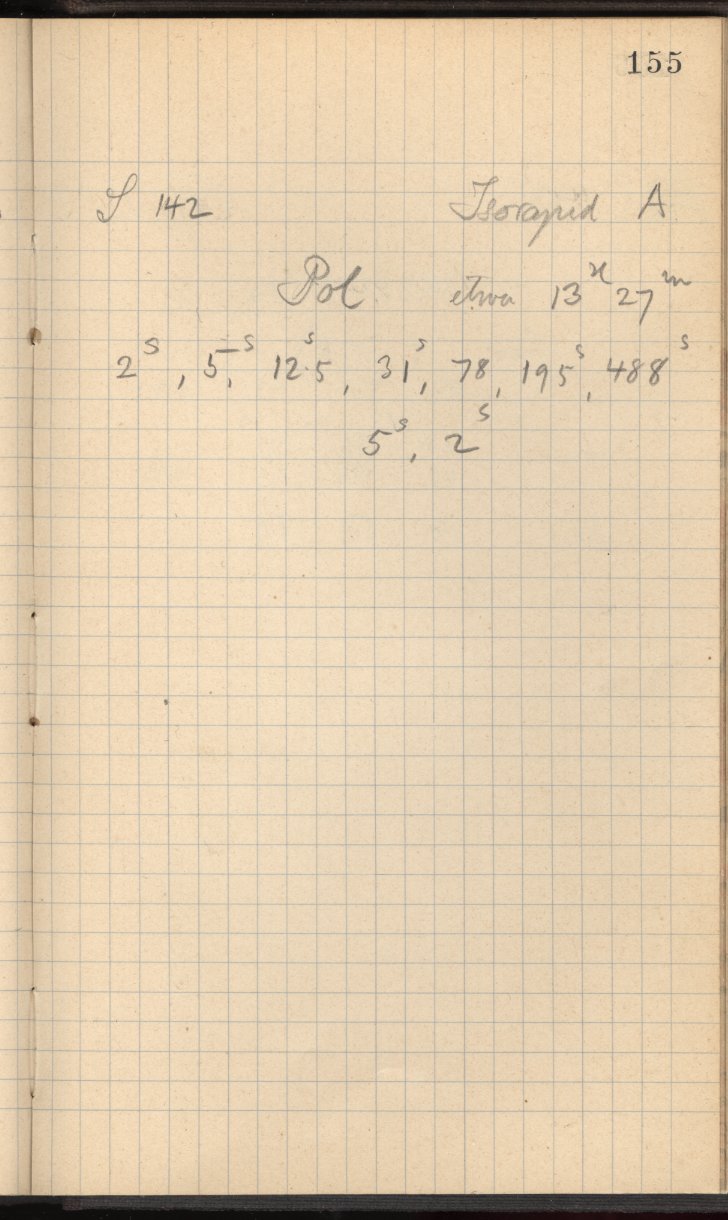 155
S 142 Isorapid A
Pol etwa 13ʰ 27ᵐ
2ˢ, 5,ˢ 12ˢ.5, 31ˢ, 78, 195ˢ, 488ˢ
5ˢ, 2ˢ